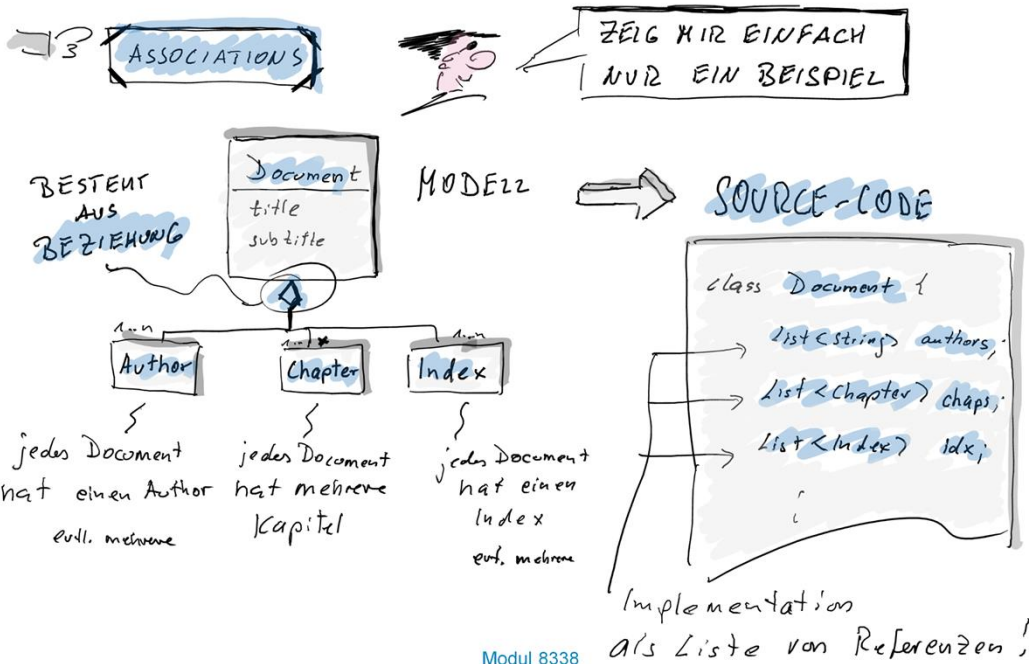 3
ASSOCIATIONS
ZEIG MIR EINFACH
NUR EIN BEISPIEL
BESTEHT
AUS
BEZIEHUNG
Document
title
subtitle
MODELL
SOURCE-CODE
1..n
1..*
1..n
Author
Chapter
Index
jedes Document
hat einen Author
evtl. mehrere
jedes Document
hat mehrere
Kapitel
jedes Document
hat einen
Index
evt. mehrere
class Document {
List<string> authors;
List<Chapter> chaps;
List<Index> idx;
Implementation
als Liste von Referenzen!
Modul 8338